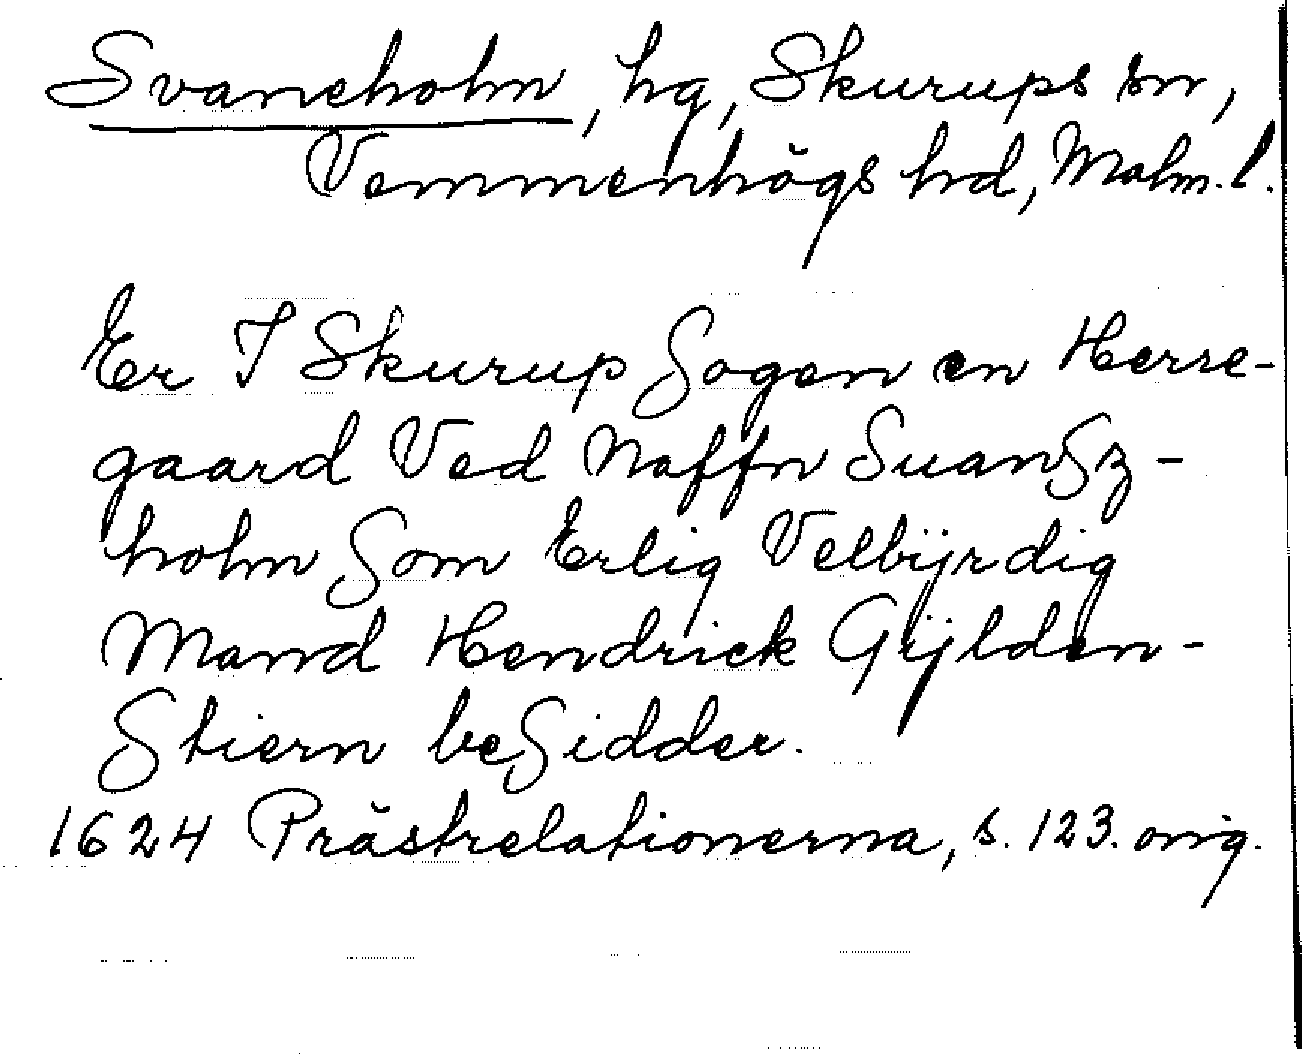 Svaneholm, hg, Skurups sn,
Vemmenhögs hd, Malm. l.
Er I Skurup Sogen en Herre-
gaard Ved Naffn SuanSz-
holm Som Erlig Velbÿrdig
Mand Hendrick Gÿlden-
Stiern beSidder.
1624 Prästrelationerna, s. 123. orig.